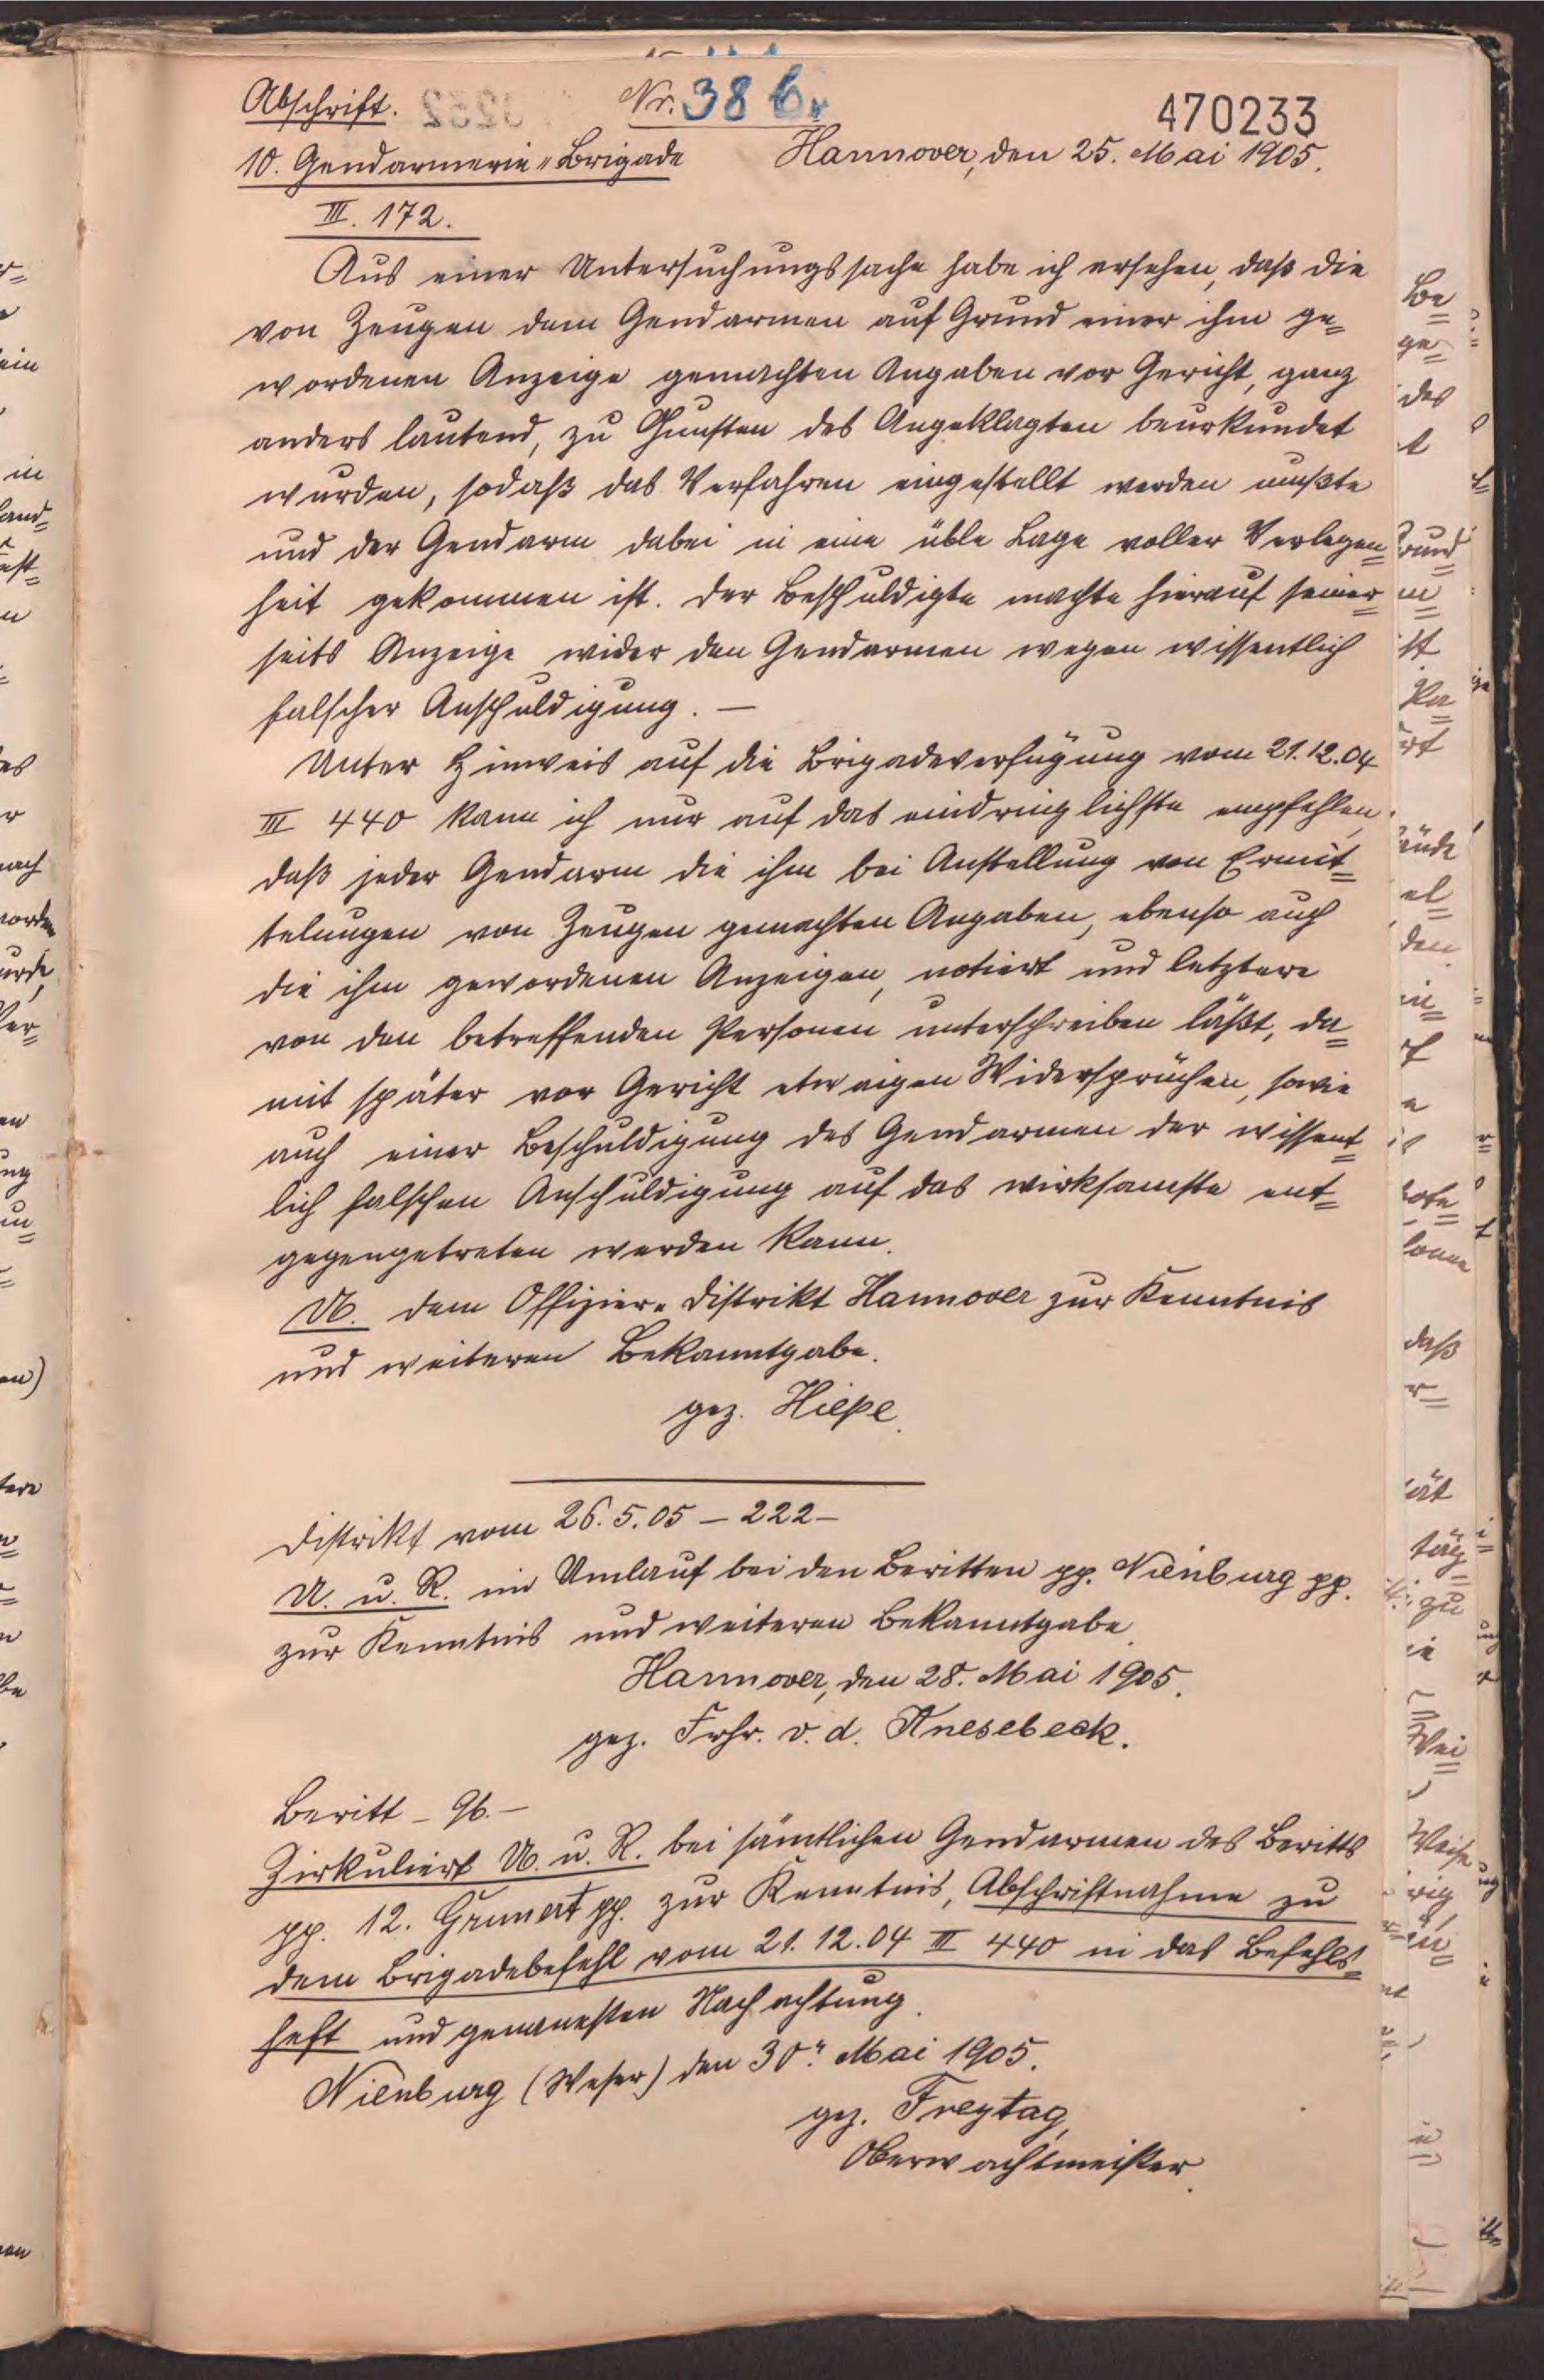 Abschrift. Nr. 38 b. 470233
10. Gendarmerie-Brigade Hannover, den 25. Mai 1905.
III. 172.
Aus einer Untersuchungssache habe ich ersehen, daß die
von Zeugen dem Gendarmen auf Grund einer ihm ge=
wordenen Anzeige gemachten Angaben vor Gericht, ganz
anders lautend, zu Gunsten des Angeklagten beurkundet
wurden, sodaß das Verfahren eingestellt werden mußte
und der Gendarm dabei in eine üble Lage voller Verlegen=
heit gekommen ist. Der Beschuldigte machte hierauf seiner=
seits Anzeige wider den Gendarmen wegen wissentlich
falscher Anschuldigung. —
Unter Hinweis auf die Brigadeverfügung vom 21.12.04
III 440 kann ich nur auf das eindringlichste empfehlen,
daß jeder Gendarm die ihm bei Anstellung von Ermit=
telungen von Zeugen gemachten Angaben, ebenso auch
die ihm gewordenen Anzeigen, notiert und letztere
von den betreffenden Personen unterschreiben läßt, da=
mit später vor Gericht etwaigen Widersprüchen, sowie
auch einer Beschuldigung des Gendarmen der wissent=
lich falschen Anschuldigung auf das wirksamste ent=
gegengetreten werden kann.
U. dem Offizier-Distrikt Hannover zur Kenntnis
und weiteren Bekanntgabe.
gez. Hiepe.
Distrikt vom 26.5.05 — 222 —
U. u. R. im Umlauf bei den Beritten pp. Nienburg pp.
zur Kenntnis und weiteren Bekanntgabe.
Hannover, den 28. Mai 1905.
gez. Frhr. v. d. Knesebeck.
Beritt — 96. —
Zirkuliert U. u. R. bei sämtlichen Gendarmen des Beritts
pp. 12. Grunert pp. zur Kenntnis, Abschriftnahme zu
dem Brigadebefehl vom 21.12.04 III 440 in das Befehls=
heft und genauesten Nachachtung.
Nienburg (Weser) den 30. Mai 1905.
gez. Freytag,
Oberwachtmeister.